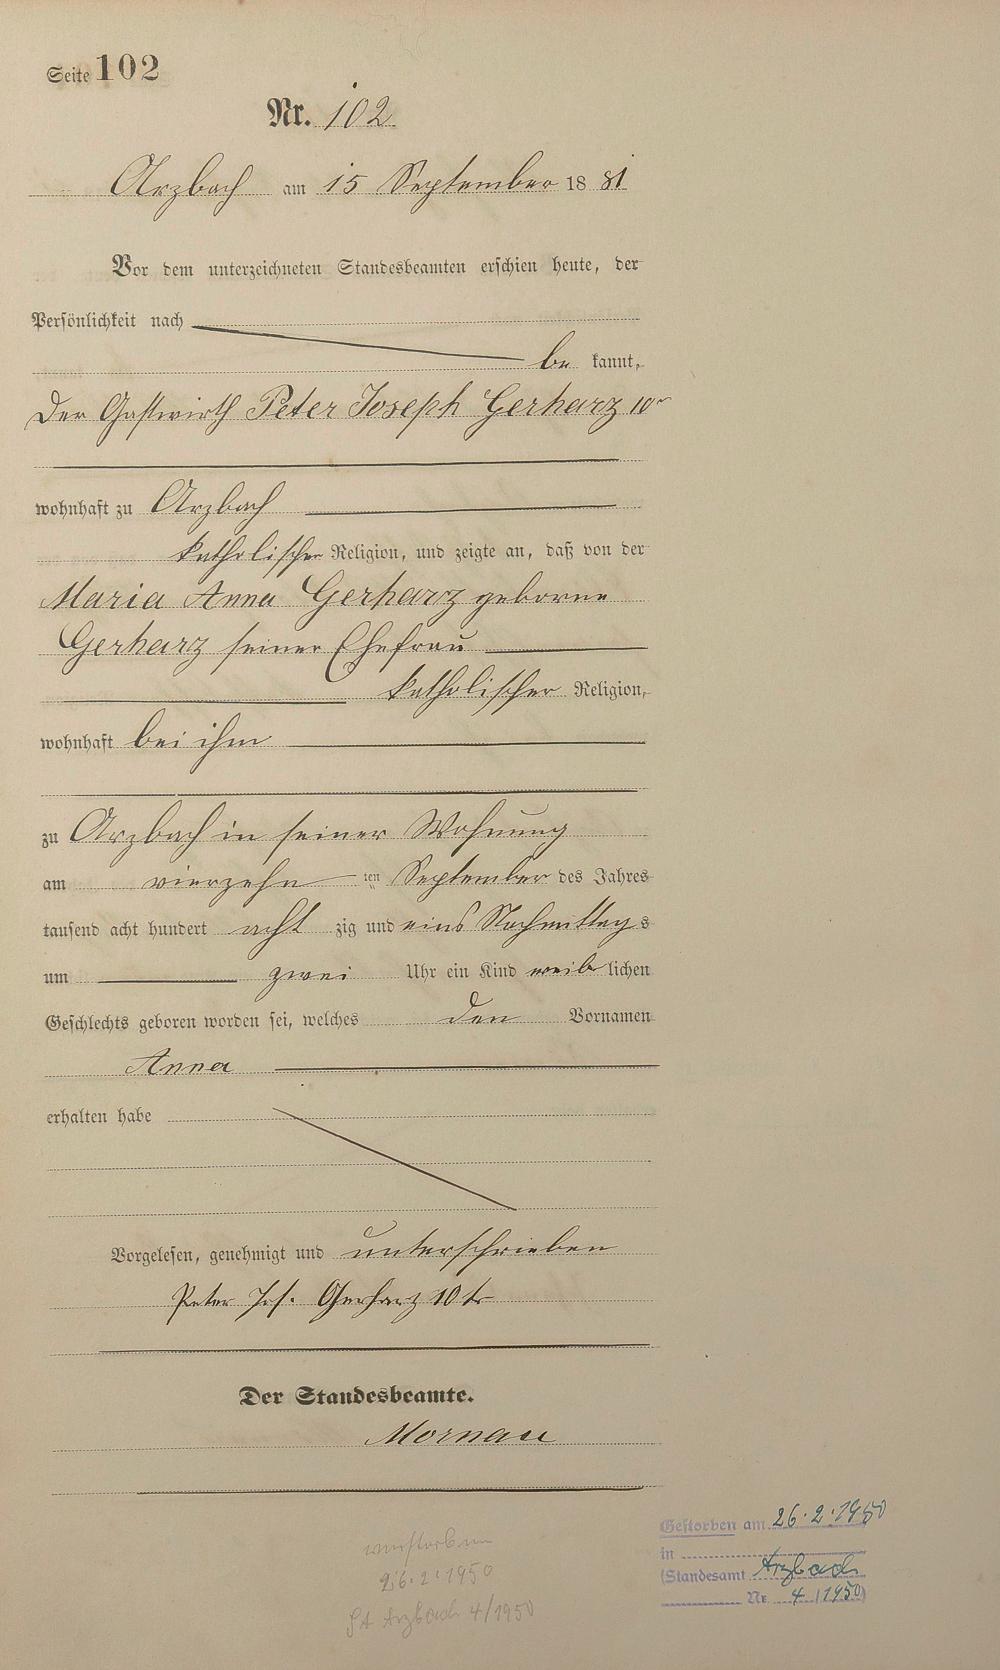 Seite 102
Nr. 102
Arzbach am 15 September 1881
Vor dem unterzeichneten Standesbeamten erschien heute, der
Persönlichkeit nach
be kannt,
Der Gastwirth Peter Joseph Gerharz 10r
wohnhaft zu Arzbach
katholischer Religion, und zeigte an, daß von der
Maria Anna Gerharz geborne
Gerharz seiner Ehefrau
katholischer Religion,
wohnhaft bei ihm
zu Arzbach in seiner Wohnung
am vierzehn ten September des Jahres
tausend acht hundert acht zig und eins Nachmittags
um zwei Uhr ein Kind weiblichen
Geschlechts geboren worden sei, welches den Vornamen
Anna
erhalten habe
Vorgelesen, genehmigt und unterschrieben
Peter Jos. Gerharz 10tr
Der Standesbeamte.
Mornau
verstorben
26.2.1950
StA Arzbach 4/1950
Gestorben am 26.2.1950
in
(Standesamt Arzbach
Nr. 4/1950)